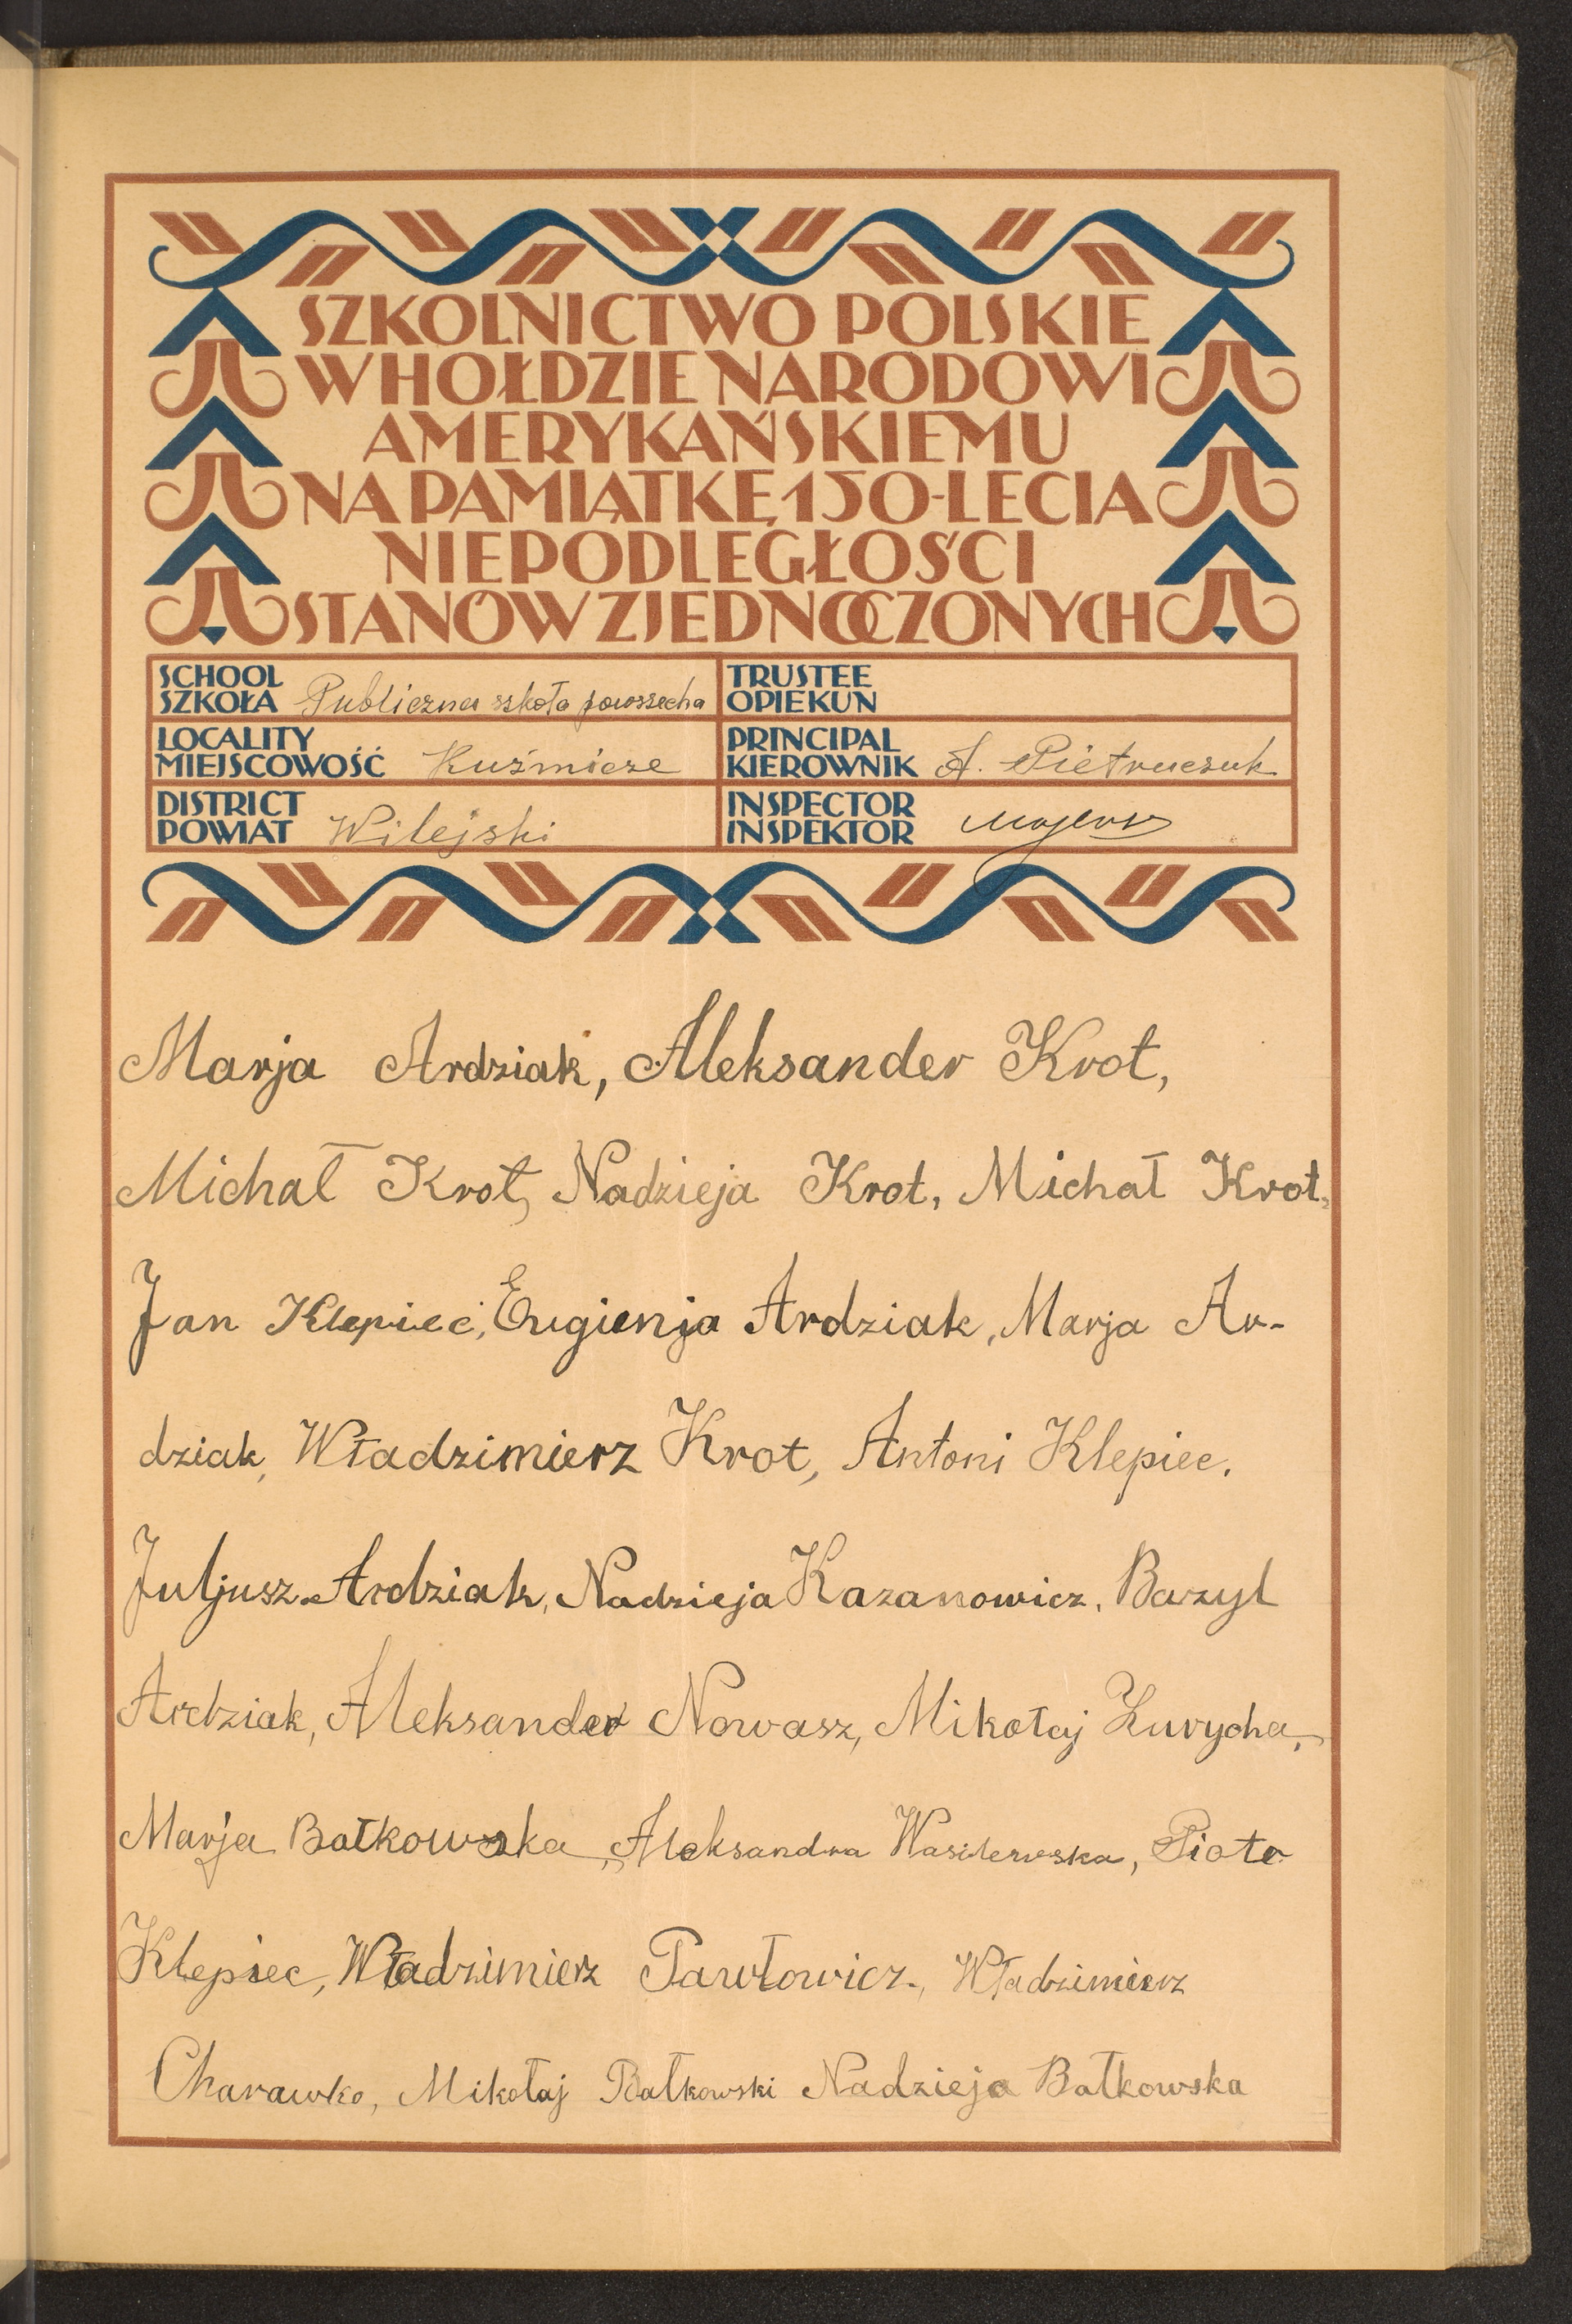 SZKOLNICTWO POLSKIE
W HOŁDZIE NARODOWI
AMERYKAŃSKIEMU
NA PAMIĄTKĘ 150-LECIA
NIEPODLEGŁOŚCI
STANÓW ZJEDNOCZONYCH
SCHOOL
SZKOŁA Publiczna szkoła powszecha
TRUSTEE
OPIEKUN
LOCALITY
MIEJSCOWOŚĆ Kuźmicze
PRINCIPAL
KIEROWNIK A. Pietruczuk
DISTRICT
POWIAT Wilejski
INSPECTOR
INSPEKTOR
Marja Ardziak, Aleksander Krot,
Michał Krot, Nadzieja Krot, Michał Krot,
Jan Klepiec, Eugienja Ardziak, Marja Ar-
dziak, Władzimierz Krot, Antoni Klepiec.
Juljusz Ardziak, Nadzieja Kazanowicz, Bazyl
Ardziak, Aleksander Nowasz, Mikołaj Kurycha,
Marja Bałkowska, Aleksandra Wasilewska, Piotr
Klepiec, Władzimierz Pawłowicz, Władzimierz
Charawko, Mikołaj Bałkowski Nadzieja Bałkowska